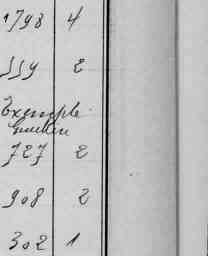 1798 4
559 2
Exemple
727 2
908 2
302 1